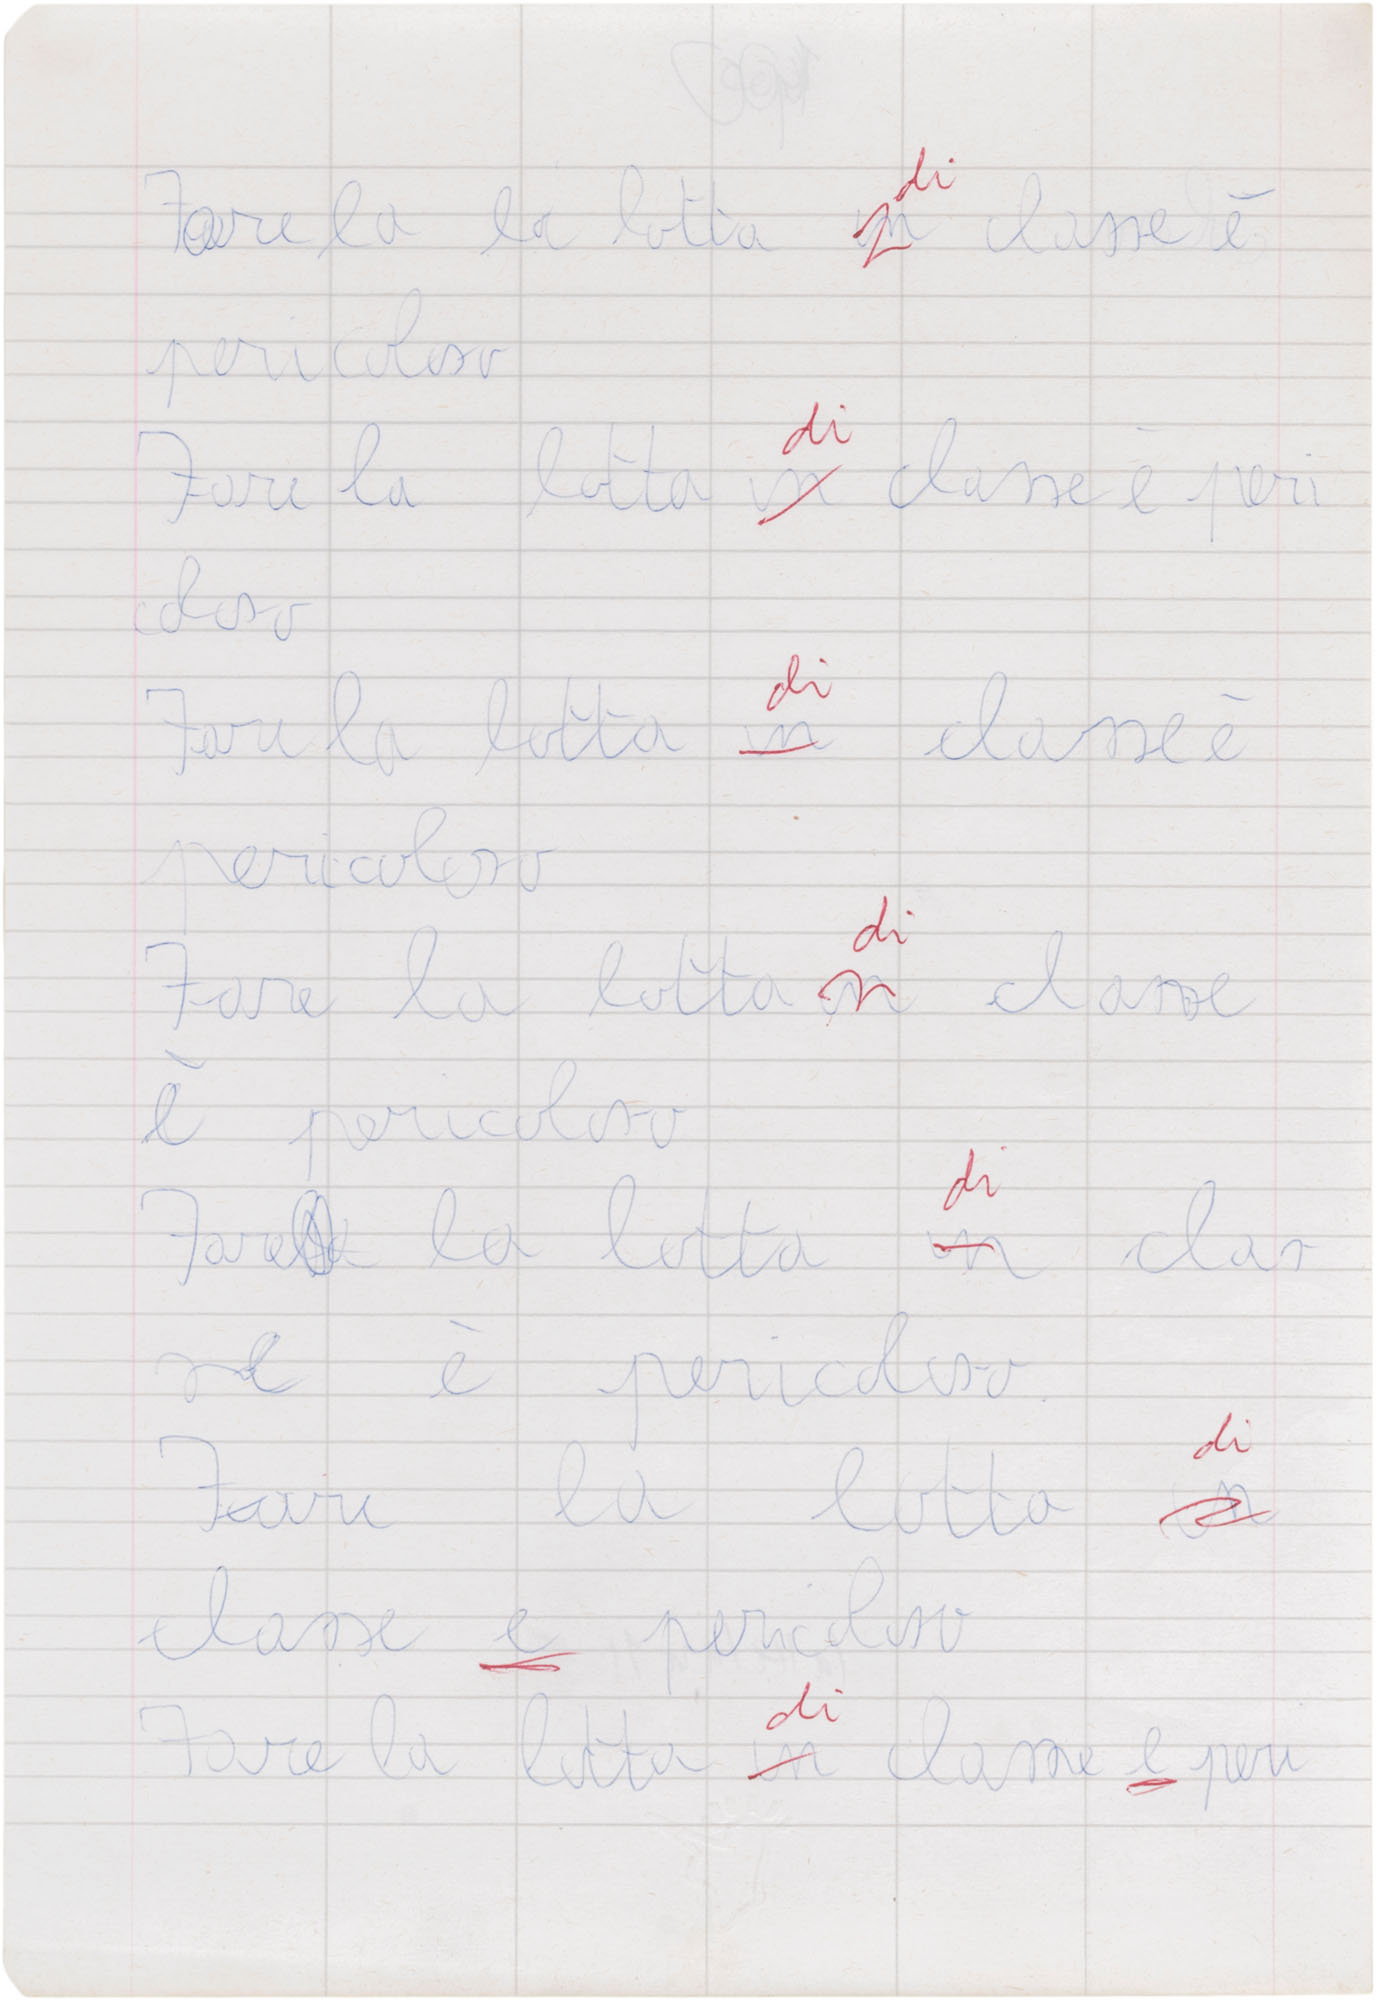 di
Fare la la lotta in classe è
pericoloso
di
Fare la lotta in classe è peri
coloso
di
Fare la lotta in classe è
pericoloso
di
Fare la lotta in classe
è pericoloso
di
Fare la lotta in clas
se è pericoloso
di
Fare la lotta in
classe e pericoloso
di
Fare la lotta in classe e peri